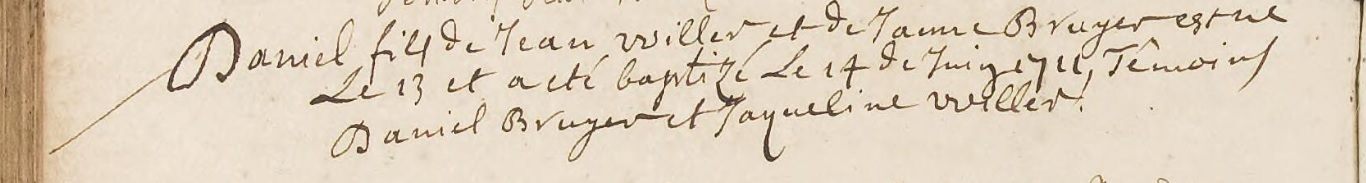 Daniel fils de Jean Willer et de Janne Bruyer est né
Le 13 et a eté baptizé Le 14 de Juin 1711, Têmoins
Daniel Bruyer et Jaqueline Willer.